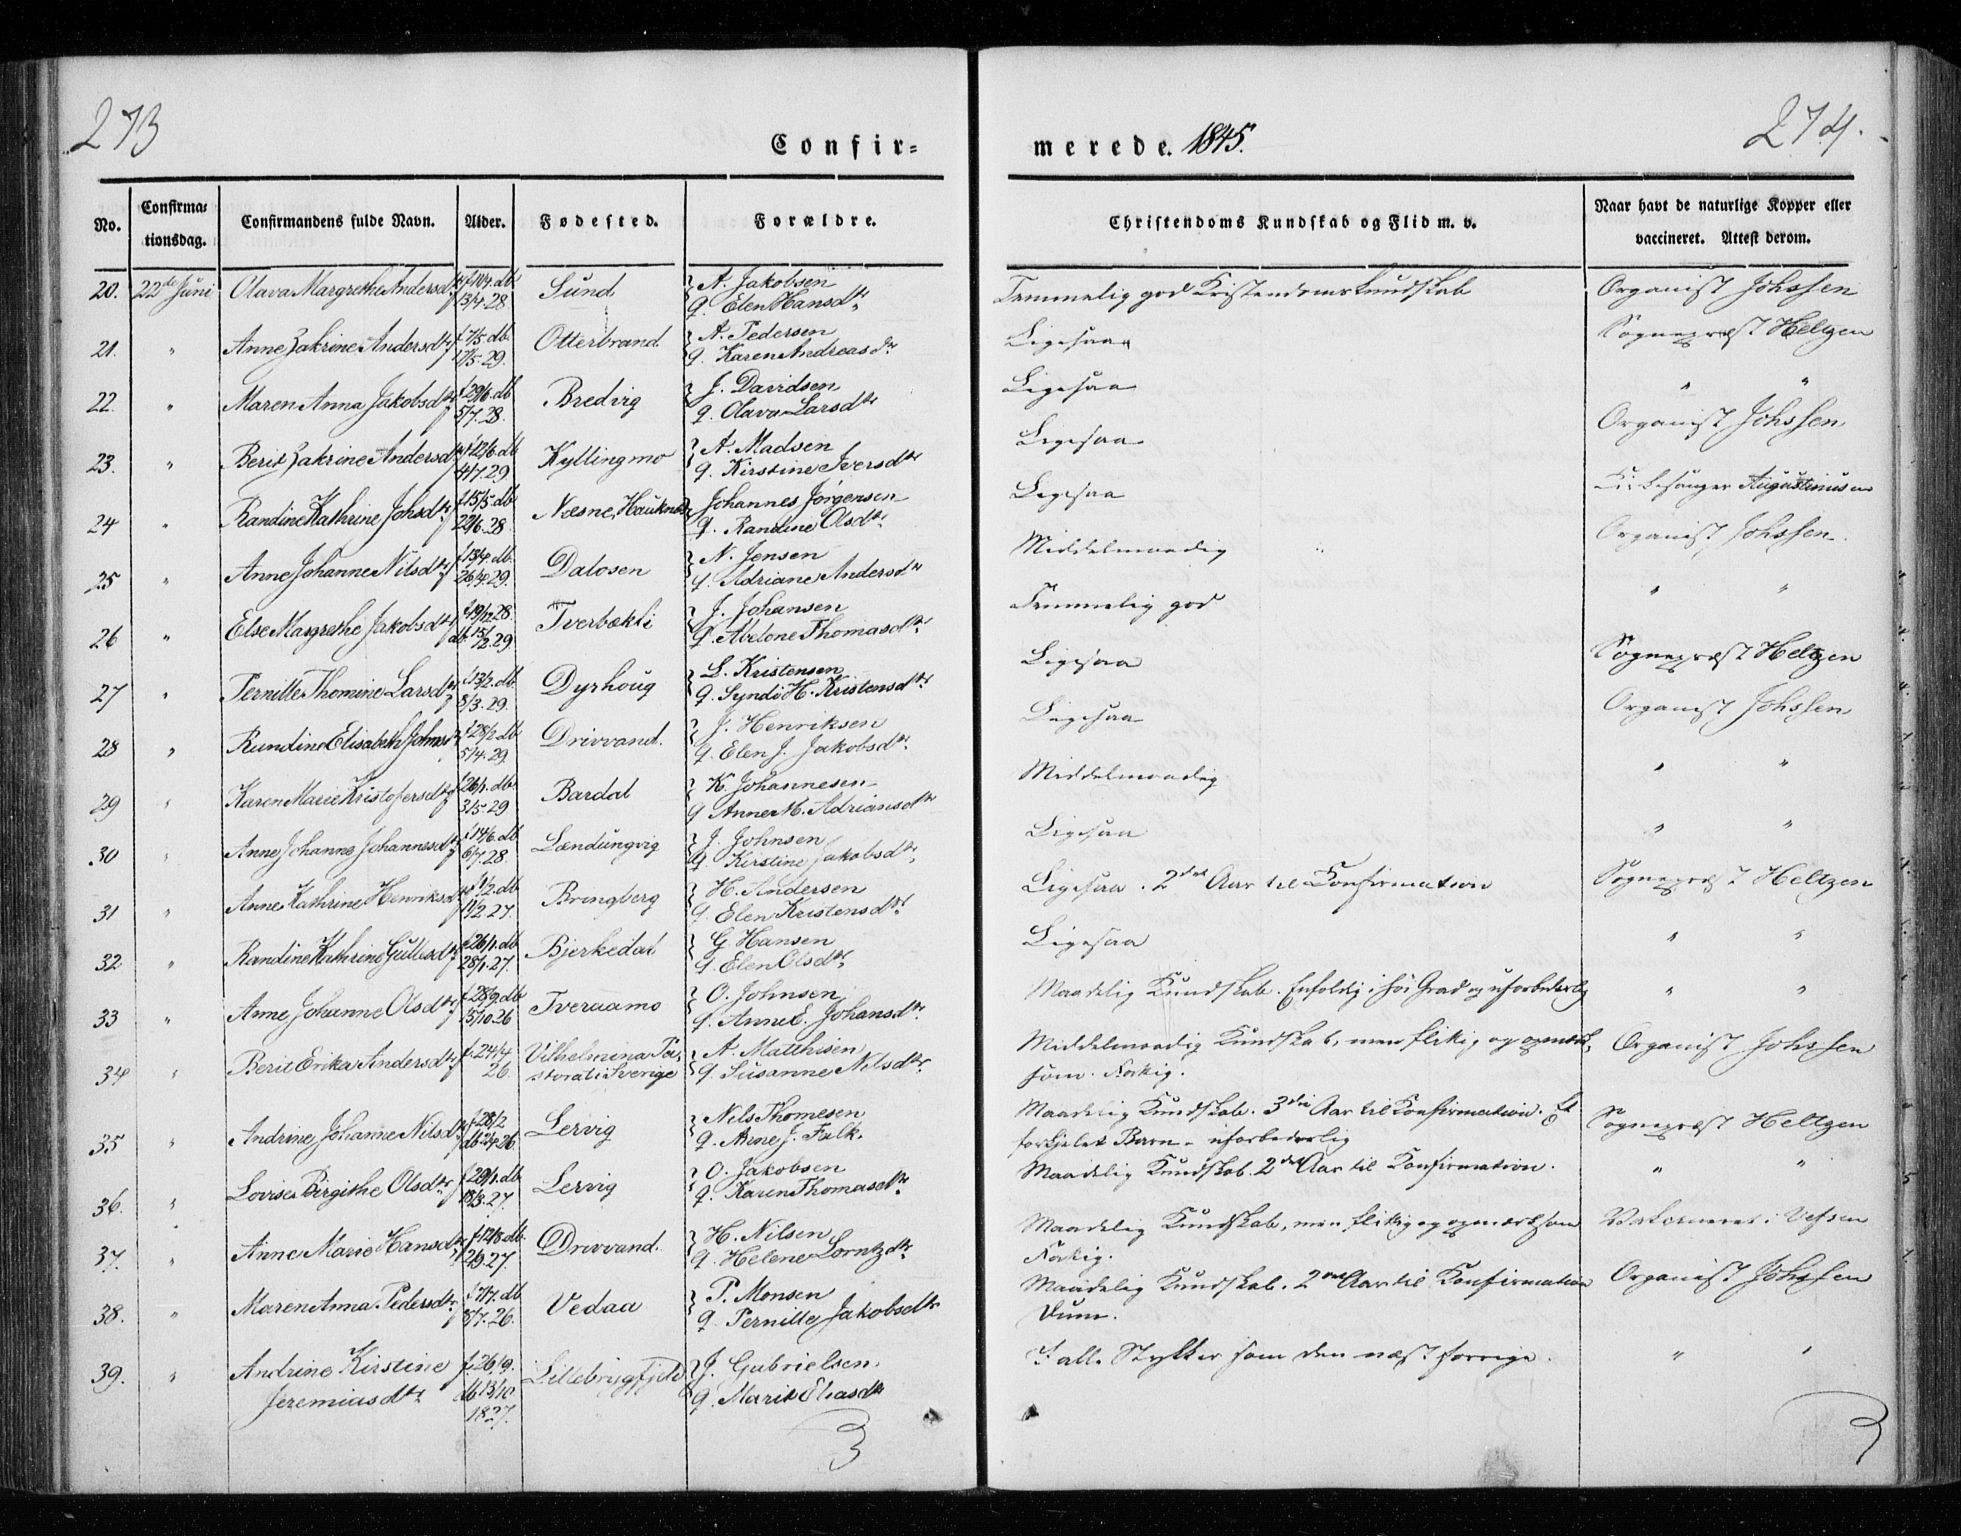 273
Confir=
merede. 1845.
274.
No.
Confirma=
tionsdag.
Confirmandens fulde Navn.
Alder.
Fødested.
Forældre.
Christendoms Kundskab og Flid m. v.
Naar havt de naturlige Kopper eller
vaccineret. Attest derom.
20. 22de Juni Olava Margrethe Andersdtr f 10/4. db. 13/4 28 Sund A. Jakobsen
q. Elen Hansdtr
Temmelig god Kristendomskundskab Organist Johssen
21. " Anne Zakrine Andersdtr f 7/5 db. 17/5. 29. Otterbrand A. Pedersen
q. Karen Andreasdr
Ligesaa Sognepræst Heltzen
22. " Maren Anna Jakobsdtr f 29/6. db 5/7. 28. Bredvig J. Davidsen
q. Olava Larsdtr
Ligesaa " "
23. " Berit Zakrine Andersdtr f 22/6. db 4/7. 29 Kyllingmo A. Madsen
q. Kirstine Iversdtr
Ligesaa Organist Johssen
24 " Randine Kathrine Johsdtr f 15/5 db 22/6. 28 Næsne, Hauknes Johannes Jørgensen
q. Randine Olsdtr
Ligesaa Kirkesanger Augustinusen
25 " Anne Johanne Nilsdtr f 13/4. db. 26/4. 29. Dalosen N. Jensen
q. Adriane Andersdtr
Middelmaadig Organist Johssen
26 " Else Margrethe Jakobsdtr f 19/12 28. db. 15/2. 29 Tverbækli J. Johansen
q. Abelone Thomasdtr
Temmelig god " "
27 " Pernille Thomine Larsdtr f 13/2. db. 8/3. 29. Dyrhoug L. Kristensen
q. Syndi H. Kristensdtr
Ligesaa Sognepræst Heltzen
28 " Rundine Elisabeth Johnsdtr f 28/2 db 5/4. 29. Drivvand. J. Henriksen
q. Elen J. Jakobsdtr
Ligesaa Organist Johssen
29 " Karen Marie Kristofersdtr f 26/1. db. 3/5. 29 Bardal K. Johannesen
q Anne M. Adriansdtr
Middelmaadig " "
30 " Anne Johanne Johannesdtr f 14/6. db. 6/7. 28. Lændingvig J. Johnsen
q. Kirstine Jakobsdtr
Ligesaa " "
31 " Anne Kathrine Henriksdtr f 1/2. db 11/2 27. Bringberg H. Andersen
q. Elen Kristensdtr
Ligesaa. 2det Aar til Konfirmation Sognepræst Heltzen
32 " Randine Kathrine Gullesdtr f 26/1. db 28/1. 27. Bjerkedal G Hansen
q. Elen Olsdtr
Ligesaa " "
33 " Anne Johanne Olsdtr f 28/9. db 15/10. 26 Tveraamo O. Johnsen
q. Anne E. Johansdtr
Maadelig Kundskab. Enfoldig i høi Grad og uforbederlig " "
34 " Berit Erika Andersdtr f. 24/4 26. Vilhelmina Pa-
storat i Sverige
A. Matthisen
q. Susanne Nilsdtr
Middelmaadig Kundskab, men flittig og opmærk-
som. Fattig.
Organist Johssen
35 " Andrine Johanne Nilsdtr f 28/2 db 24/4 26. Lervig Nils Thomesen
q. Anne J. Falk.
Maadelig Kundskab. 3die Aar til Konfirmation. Et
forkjelet Barn - uforbederlig
Sognepræst Heltzen
36. " Lovise Birgithe Olsdtr f 29/1. db. 18/3. 27. Lervig O. Jakobsen
q. Karen Thomasdtr
Maadelig Kundskab. 2det Aar til Konfirmation. " "
37. " Anne Marie Hansdtr f 12/8 db. 2/9. 27. Drivvand. H. Nilsen
q. Helene Lorntzdtr
Maadelig Kundskab, men flittig og opmærksom
Fattig.
Vakcineret i Vefsen
38. " Maren Anna Pedersdtr f 7/7. db 8/7. 26. Vedaa P. Monsen
q. Pernille Jakobsdtr
Maadelig Kundskab. 2det Aar til Konfirmation
Dum.
Organist Johssen
39. " Andrine Kirstine
Jeremiasdtr
f. 26/9. db 13/10. 1827. Lillebrygfjeld J. Gabrielsen.
q. Marit Eliasdtr
I alle Stykker som den næst forrige. " "